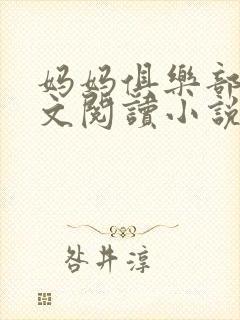 妈妈俱樂部
文閱讀小説
咎井淳